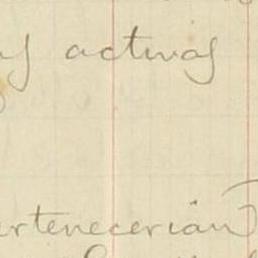 activas
ertenecerian